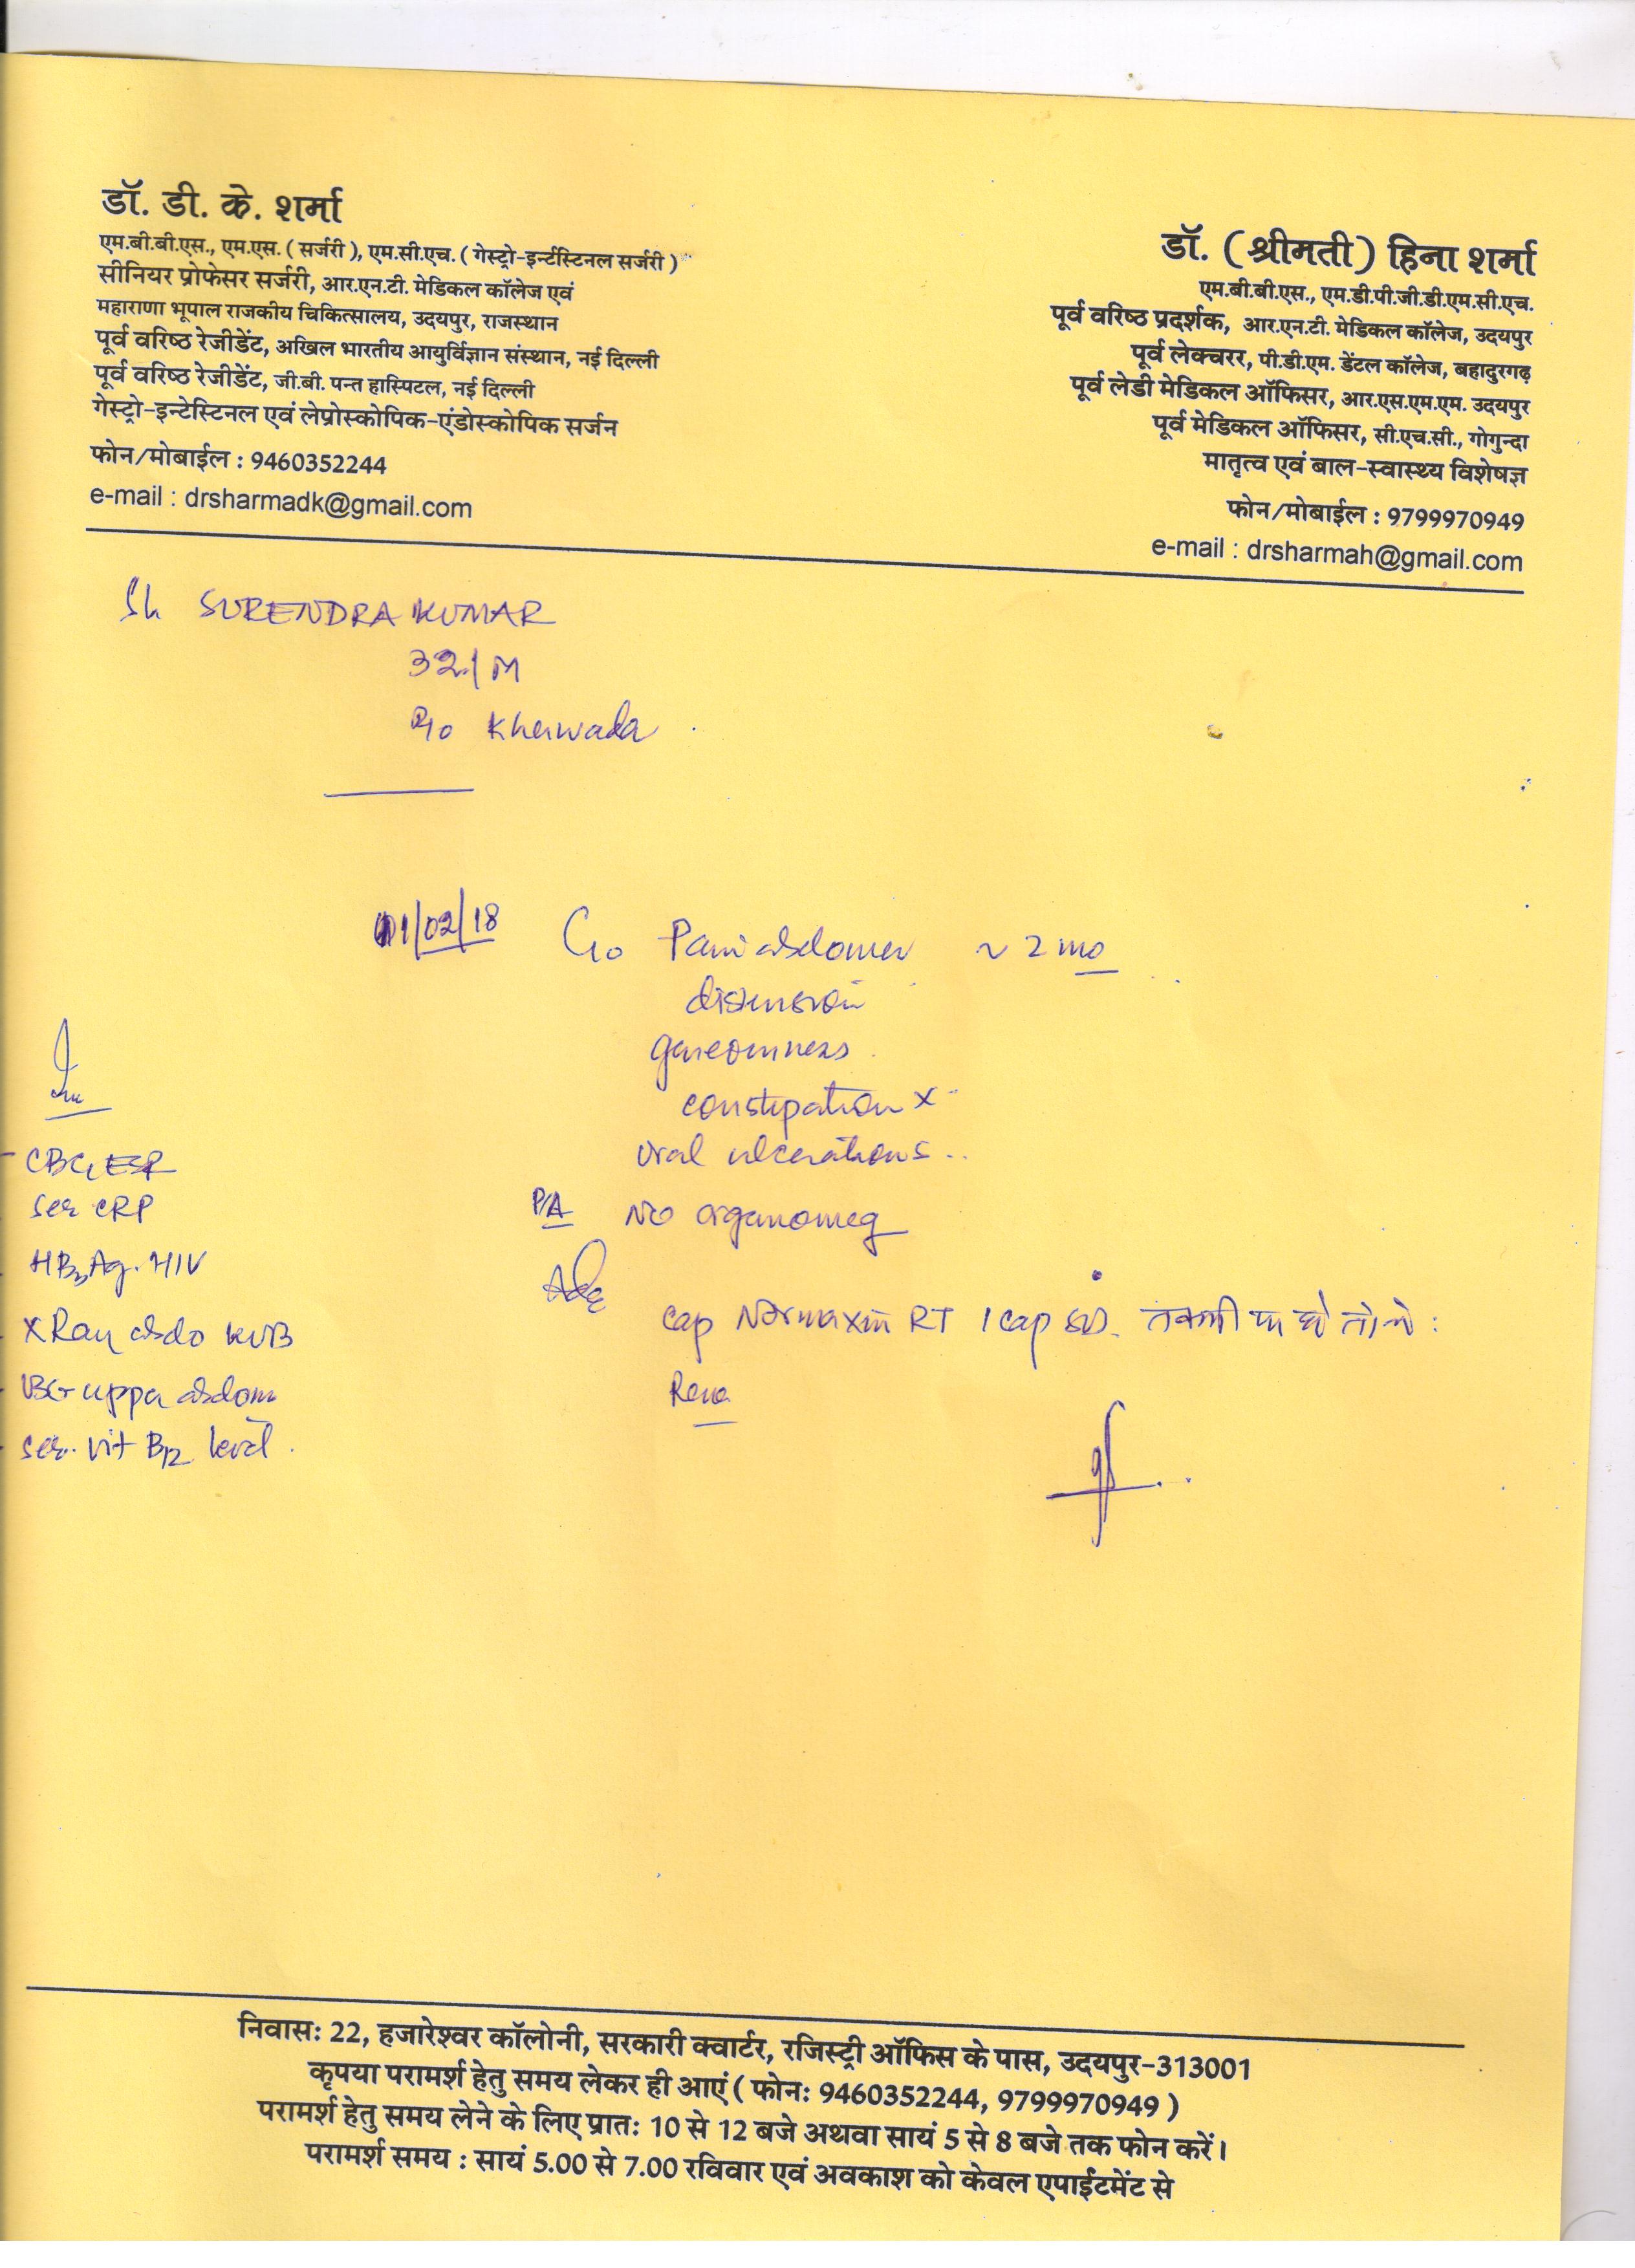 डॉ. डी. के. शर्मा
एम.बी.बी.एस., एम.एस. ( सर्जरी ), एम.सी.एच. ( गेस्ट्रो-इन्टेस्टिनल सर्जरी )
सीनियर प्रोफेसर सर्जरी, आर.एन.टी. मेडिकल कॉलेज एवं
महाराणा भूपाल राजकीय चिकित्सालय, उदयपुर, राजस्थान
पूर्व वरिष्ठ रेजीडेंट, अखिल भारतीय आयुर्विज्ञान संस्थान, नई दिल्ली
पूर्व वरिष्ठ रेजीडेंट, जी.बी. पन्त हास्पिटल, नई दिल्ली
गेस्ट्रो-इन्टेस्टिनल एवं लेप्रोस्कोपिक-एंडोस्कोपिक सर्जन
फोन/मोबाईल : 9460352244
e-mail : drsharmadk@gmail.com
डॉ. (श्रीमती) हिना शर्मा
एम.बी.बी.एस., एम.डी.पी.जी.डी.एम.सी.एच.
पूर्व वरिष्ठ प्रदर्शक, आर.एन.टी. मेडिकल कॉलेज, उदयपुर
पूर्व लेक्चरर, पी.डी.एम. डेंटल कॉलेज, बहादुरगढ़
पूर्व लेडी मेडिकल ऑफिसर, आर.एस.एम.एम. उदयपुर
पूर्व मेडिकल ऑफिसर, सी.एच.सी., गोगुन्दा
मातृत्व एवं बाल-स्वास्थ्य विशेषज्ञ
फोन/मोबाईल : 9799970949
e-mail : drsharmah@gmail.com
Sh SURENDRA KUMAR
32/M
R/o Kherwada
01/02/18 C/o Pain abdomen ~ 2 mo
distension
gaseousness
constipation x
oral ulcerations
P/A No organomeg
Adv
cap Normaxin RT 1 cap SOS. तकलीफ हो तो ले :
Inv
- CBC, ESR
ser CRP
- HBsAg. HIV
- X Ray abdo KUB
- USG upper abdom
- ser. vit B12 level
निवास: 22, हजारेश्वर कॉलोनी, सरकारी क्वार्टर, रजिस्ट्री ऑफिस के पास, उदयपुर-313001
कृपया परामर्श हेतु समय लेकर ही आएं ( फोन: 9460352244, 9799970949 )
परामर्श हेतु समय लेने के लिए प्रात: 10 से 12 बजे अथवा सायं 5 से 8 बजे तक फोन करें।
परामर्श समय : सायं 5.00 से 7.00 रविवार एवं अवकाश को केवल एपाईंटमेंट से